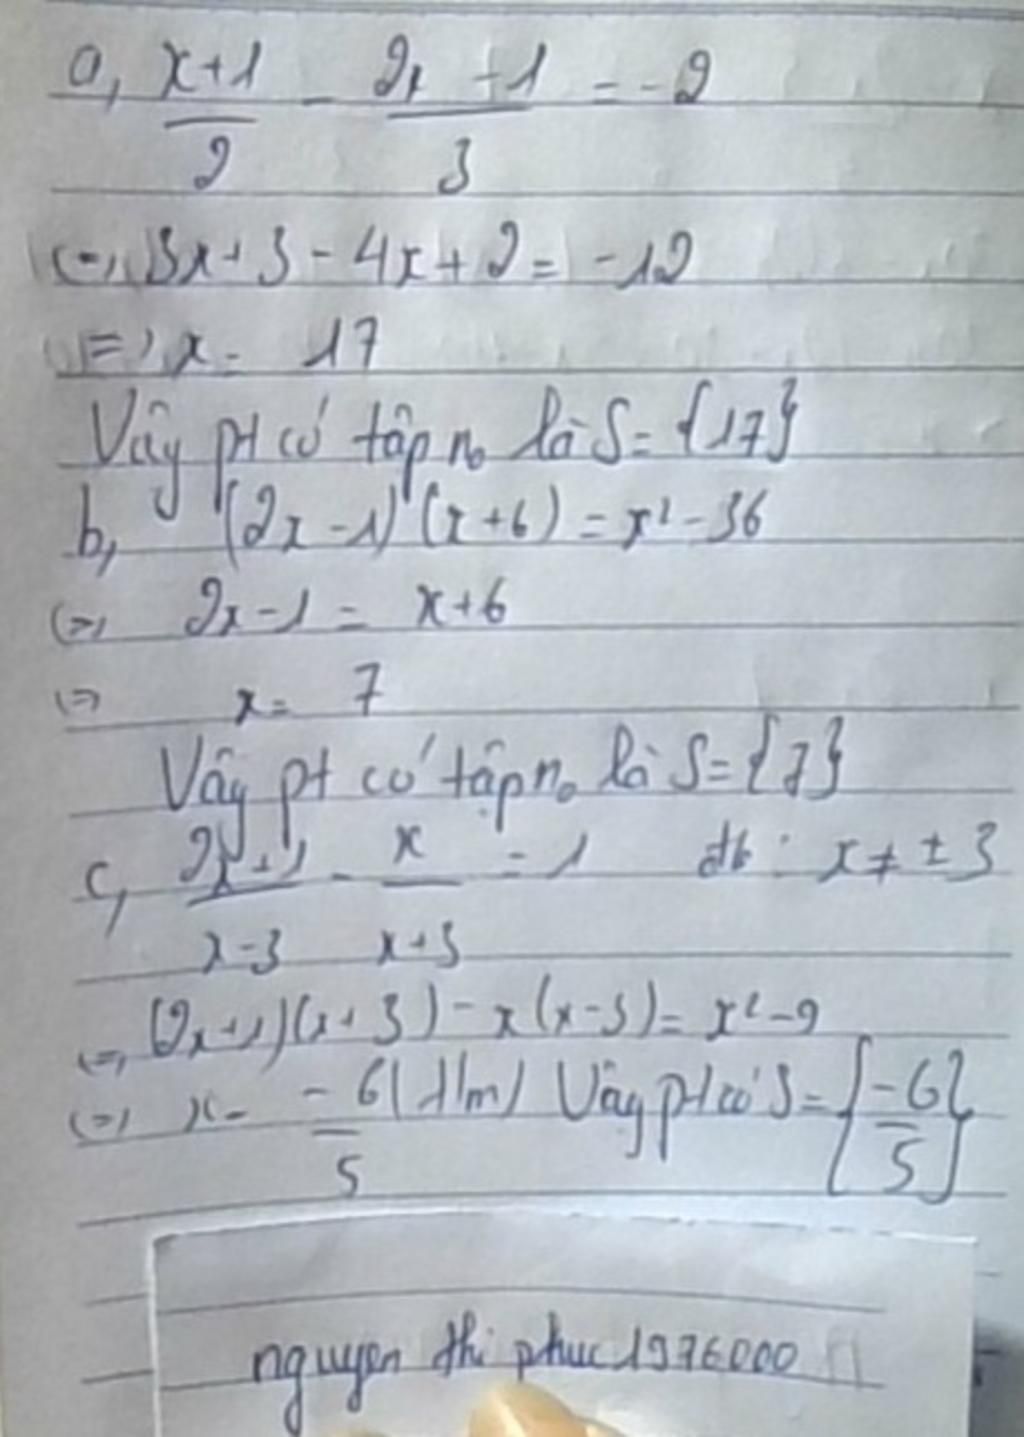 a, x+1 - 2x - 1 = -2
2 3
<=> 3x+3 - 4x + 2 = -12
=> x = 17
Vậy pt có tập no là S = {17}
b, (2x - 1) (x+6) = x² - 36
<=> 2x - 1 = x+6
<=> x = 7
Vậy pt có tập no là S = {7}
c, 2x+1 - x = 1 đk : x ≠ ± 3
x-3 x+3
<=> (2x+1)(x+3) - x(x-3) = x² - 9
<=> x = -6 (t/m) Vậy pt có S = {-6}
5 5
nguyen thi phuc 1976000